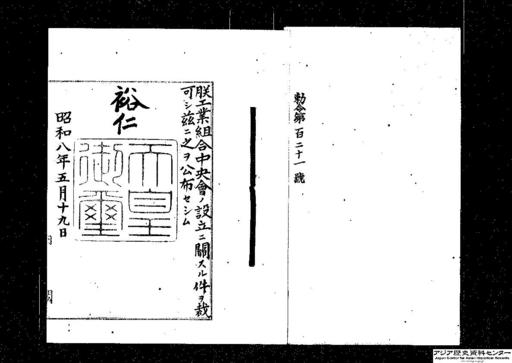 勅令第百二十一號
朕工業組合中央會ノ設立ニ關スル件ヲ裁
可シ茲ニ之ヲ公布セシム
裕仁
天皇
御璽
昭和八年五月十九日
アジア歴史資料センター
Japan Center for Asian Historical Records